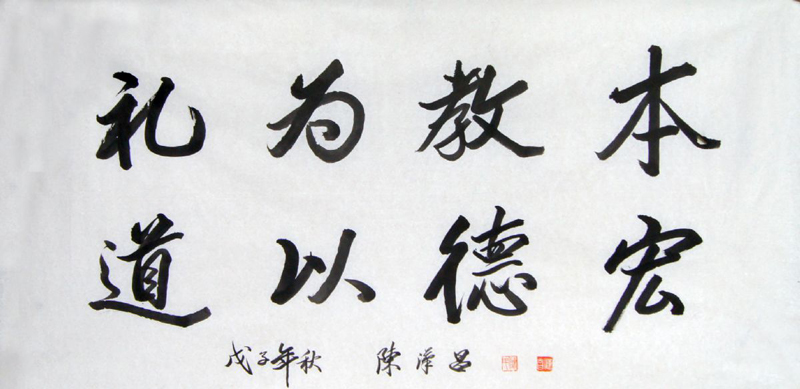 本教为礼
宏德以道
戊子年秋 陳泽昌